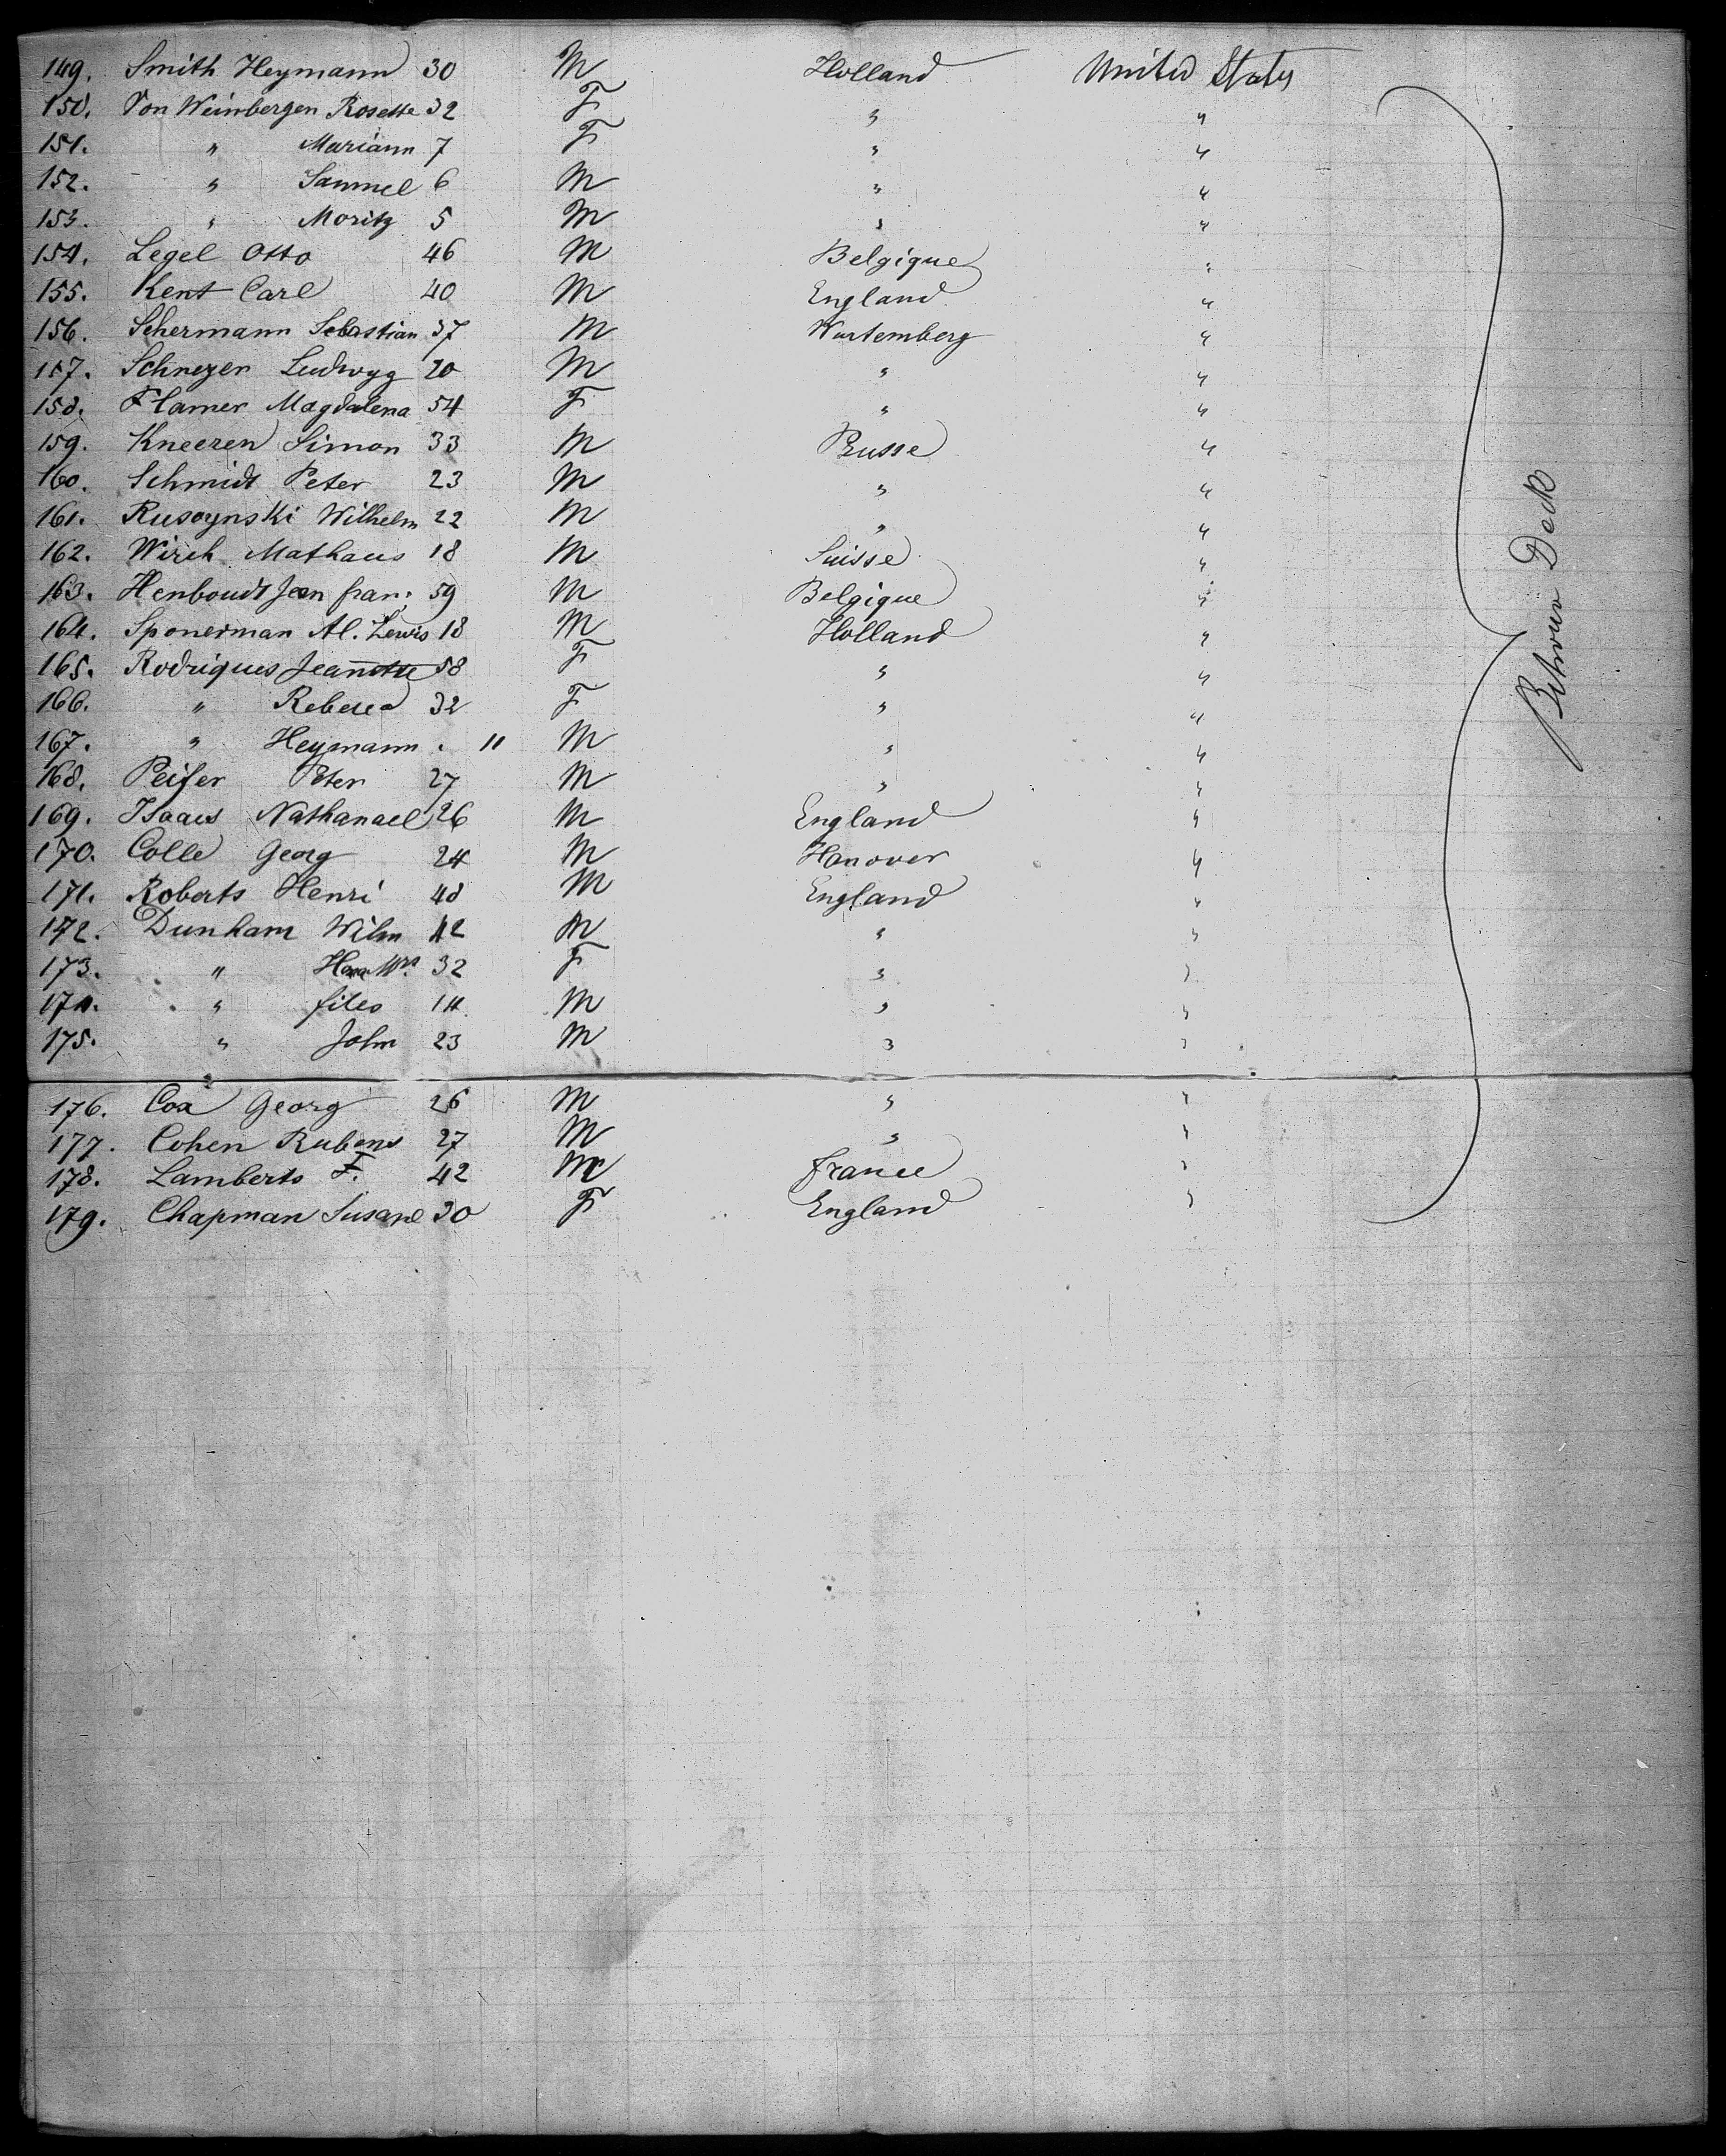 149. Smith Heymann 30 M Holland United States
150. Von Weinbergen Rosette 32 F " "
151. " Mariann 7 F " "
152. " Samuel 6 M " "
153. " Moritz 5 M " "
154. Legel Otto 46 M Belgique "
155. Kent Carl 40 M England "
156. Schermann Sebastian 37 M Wurtemberg "
157. Schnezer Ludwyg 20 M " "
158. Flamer Magdalena 54 F " "
159. Kneeren Simon 33 M Prusse "
160. Schmidt Peter 23 M " "
161. Rusoynski Wilhelm 22 M " "
162. Wirch Mathaus 18 M Suisse "
163. Henboudt Jean fran: 59 M Belgique "
164. Sponerman Al. Lewis 18 M Holland "
165. Rodriques Jeannette 58 F " "
166. " Rebecca 32 F " "
167. " Heymann . 11 M " "
168. Peifer Peter 27 M " "
169. Isaacs Nathanael 26 M England "
170. Colle Georg 24 M Hanover "
171. Roberts Henri 48 M England "
172. Dunham Wilm 42 M " "
173. " Mrs 32 F " "
174. " files 14 M " "
175. " John 23 M " "
176. Cox Georg 26 M " "
177. Cohen Rubens 27 M " "
178. Lamberts F. 42 M France "
179. Chapman Susane 30 F England "
Between Deck